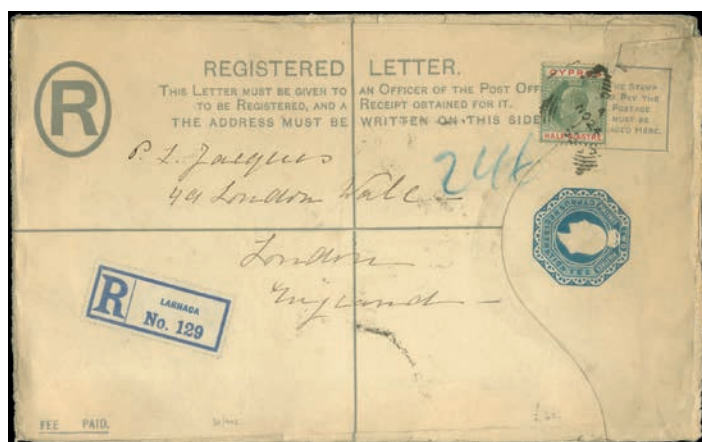 R
REGISTERED LETTER.
THIS LETTER MUST BE GIVEN TO AN OFFICER OF THE POST OFF
TO BE REGISTERED, AND A RECEIPT OBTAINED FOR IT.
THE ADDRESS MUST BE WRITTEN ON THIS SIDE
CYPR
HALF PIASTRE
HE STAMP
PAY THE
POSTAGE
MUST BE
ACED HERE.
P. L. Jacques
49 London Wall
London
England
R
LARNACA
No. 129
FEE PAID.